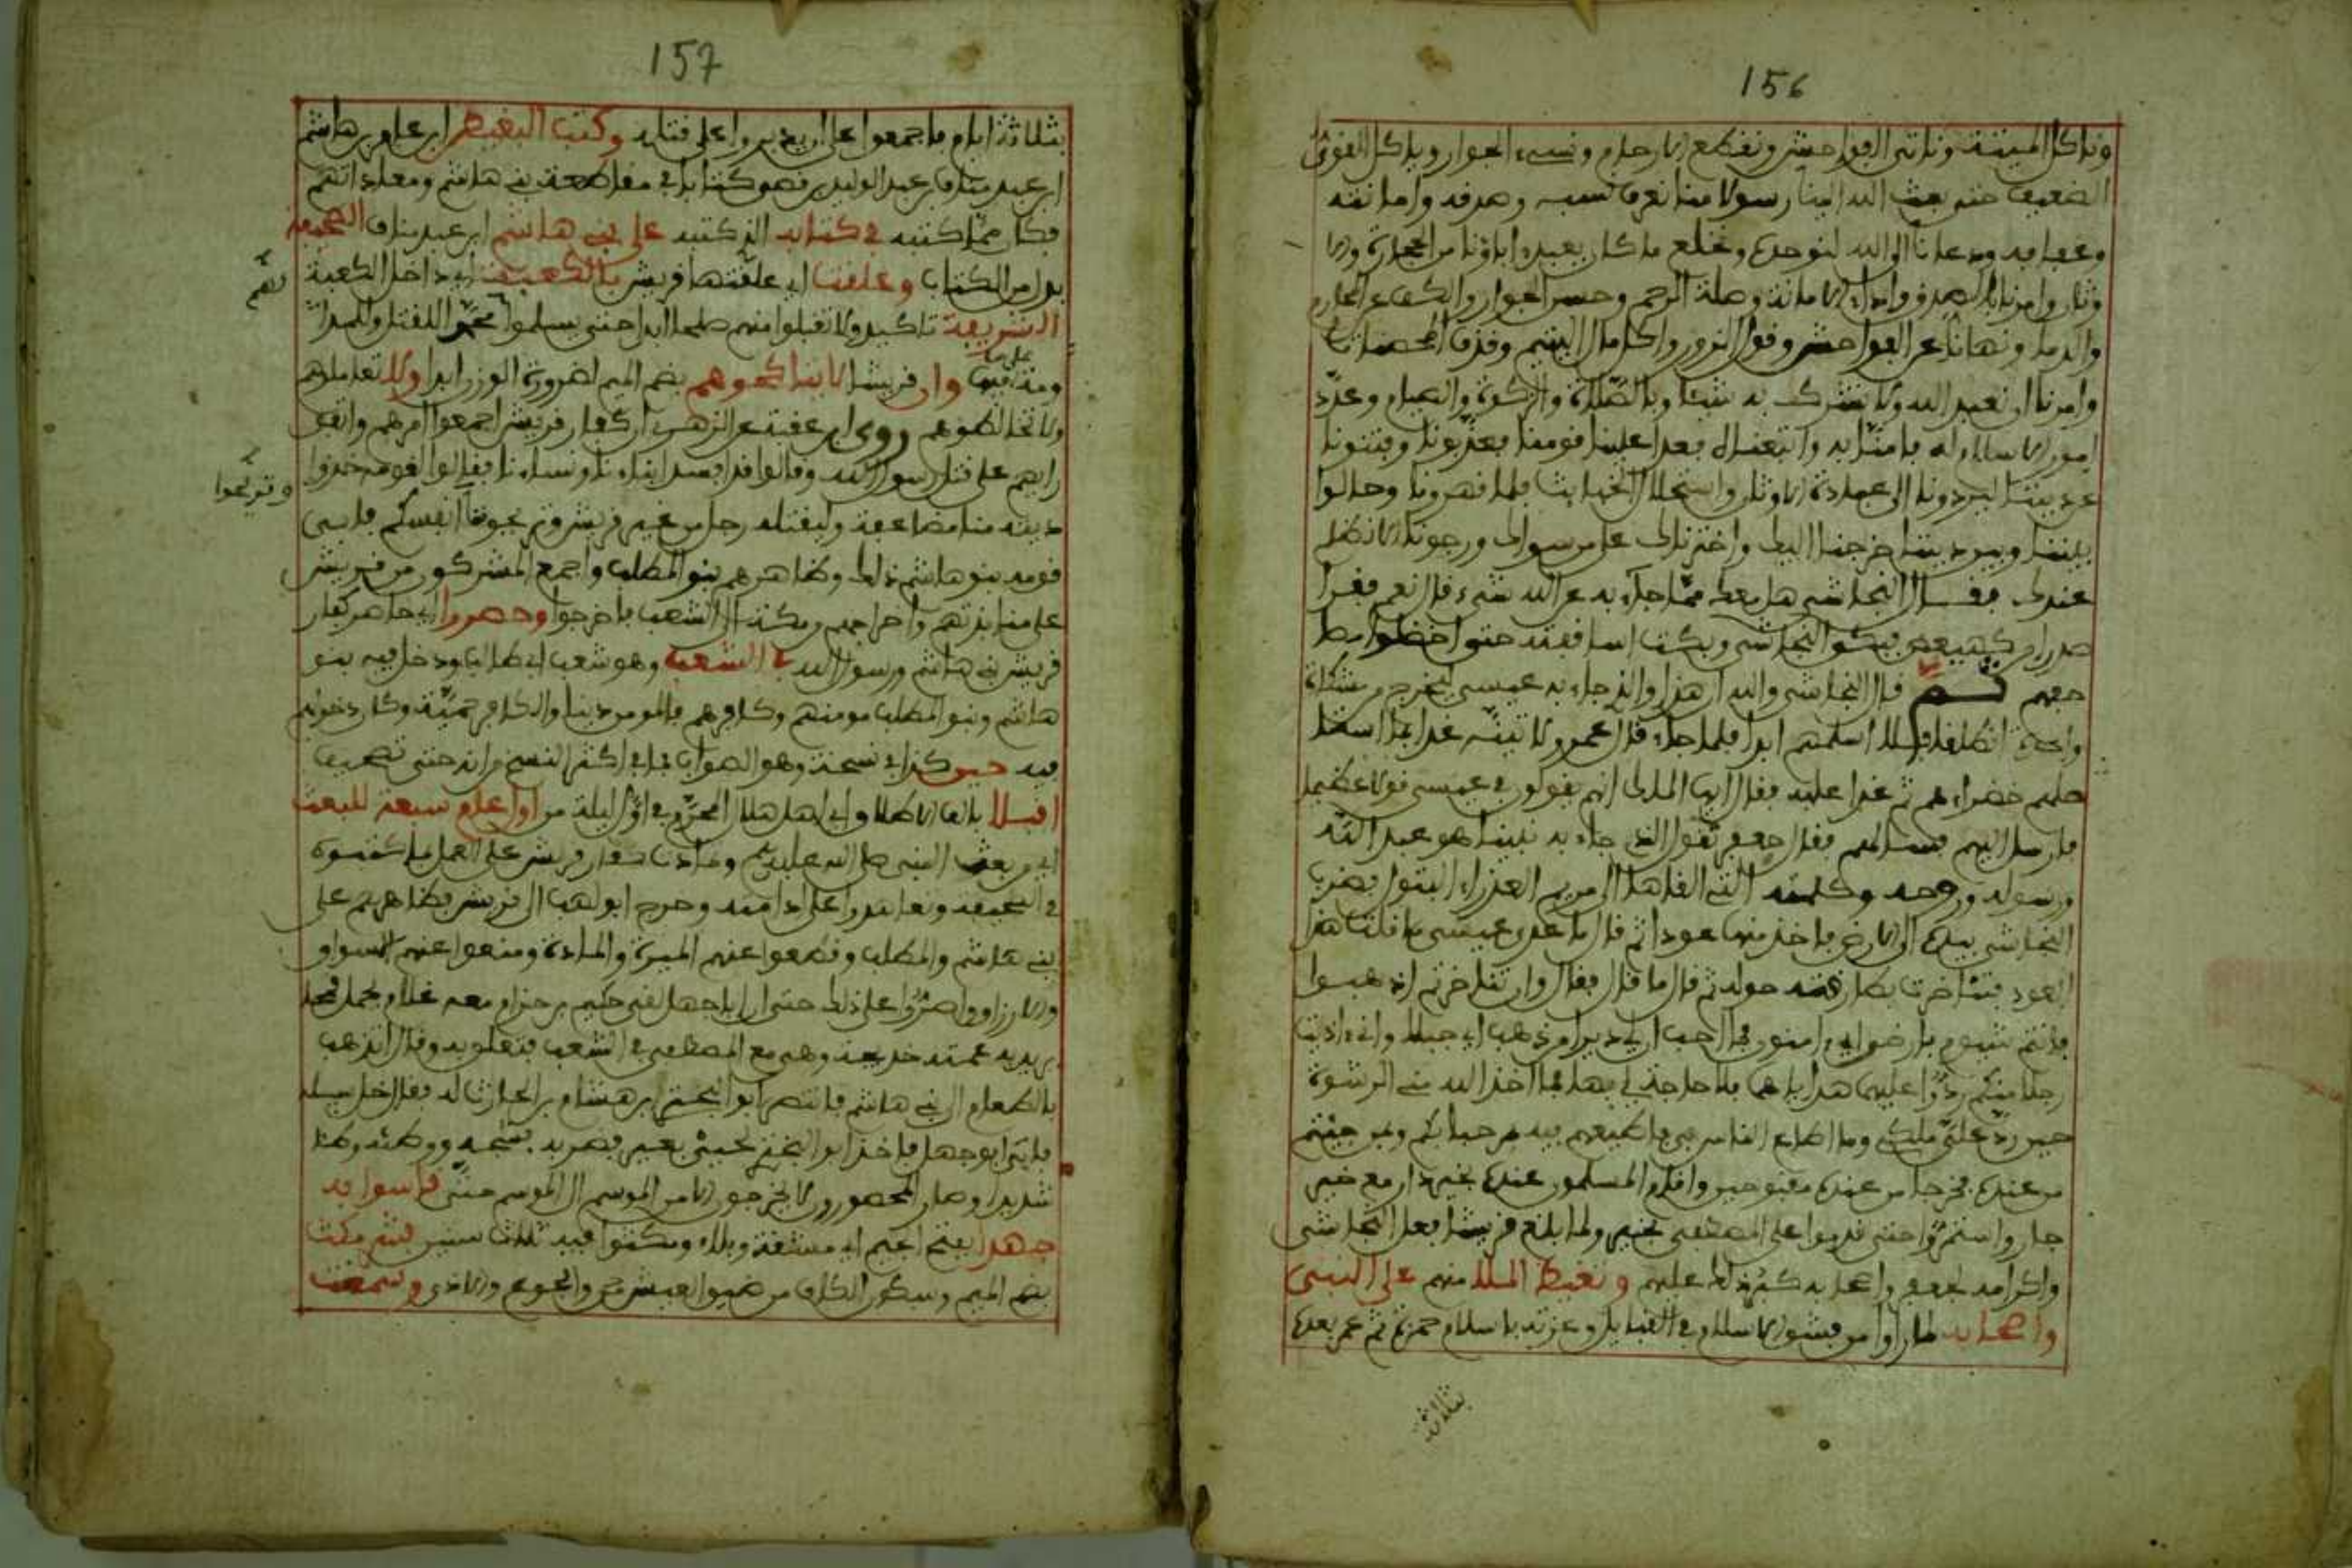 156
وناكل الميتة وناتي الفواحش ونقطع الارحام ونسيء الجوار وياكل القوي
الضعيف حتى بعث الله الينا رسولا منا نعرف نسبه وصدقه وامانته
وعفافه ودعانا الى الله لنوحده ونخلع ما كان يعبد اباؤنا من الحجارة والا
وثان وامرنا بالصدق واداء الامانة وصلة الرحم وحسن الجوار والكف عن المحارم
والدماء ونهانا عن الفواحش وقول الزور واكل مال اليتيم وقذف المحصنات
وامرنا ان نعبد الله ولا نشرك به شيئا وبالصلاة والزكوة والصيام وعدد
امور الاسلام له فامنا به واتبعناه فعدا علينا قومنا فعذبونا وفتنونا
عن ديننا ليردونا الى عبادة الاوثان واستحلال الخبايث فلما قهرونا وحالوا
بيننا وبين ديننا خرجنا اليك واخترناك على من سواك ورجونا الا نظلم
عندك فقال النجاشي هل معك مما جاء به عن الله شيء قال نعم فقرا
صدرا من كهيعص فبكى النجاشي وبكت اساقفته حتى اخضلوا مصا
حفهم ثم قال النجاشي والله ان هذا والذي جاء به عيسى ليخرج من مشكاة
واحدة انطلقا فلا اسلمهم ابدا فلما جاء قال عمرو لاتينه غدا بما استا
صلهم خضراءهم ثم غدا عليه فقال ايها الملك انهم يقولون في عيسى قولا عظيما
فارسل اليهم فسالهم فقال جعفر نقول الذي جاء به نبينا هو عبد الله
ورسوله وروحه وكلمته التي القاها الى مريم العذراء البتول فضرب
النجاشي بيده الى الارض فاخذ منها عودا ثم قال ما عدى عيسى ما قلت هذا
العود فتناخرت بطارقته حوله ثم قال ما قال فقال وان تناخرتم اذهبوا
فانتم شيوم بارضي اي امنون ما احب ان لي ديرا من ذهب اي جبلا واني اذيت
رجلا منكم ردوا عليهما هداياهما فلا حاجة لي بها فما اخذ الله مني الرشوة
حين رد علي ملكي وما اطاع الناس في فاطيعهم فيه مرحبا بكم وبمن جيتم
من عنده فخرجا من عنده مقبوحين واقام المسلمون عنده بخير دار مع خير
جار واستمروا حتى قدموا على المصطفى بخيبر ولما بلغ قريشا فعل النجاشي
واكرامه لجعفر واصحابه كبر ذلك عليهم وتغيظ الملا منهم على النبي
واصحابه لما راوا من فشو الاسلام في القبايل وعزته باسلام حمزة ثم عمر بعده
بثلاثة
157
بثلاثة ايام فاجمعوا على ان يدبروا على قتله وكتب البغيض ابن عامر بن هاشم
ابن عبد مناف بن عبد الدار فهو كتابا في مقاطعة بني هاشم ومعاداتهم
فكان مما كتبه في كتابه الذي كتبه على بني هاشم ابن عبد مناف الصحيفة
بدل من الكتاب وعلقت اي علقتها قريش بالكعبة اي داخل الكعبة
الشريفة تاكيدا ولا تقبلوا منهم صلحا ابدا حتى يسلموا محمدا للقتل
ومما فيها وان قريشا لا يناكحوهم بضم الميم لضرورة الوزن ابدا ولا نعاملهم
ولا نخالطوهم روى ابن عقبة عن الزهري ان كفار قريش اجمعوا امرهم واتفق
رايهم على قتل رسول الله وقالوا قد افسد ابناءنا ونساءنا فقالوا لقومه خذوا
ديته منا مضاعفة وليقتله رجل من غير قريش وتريحونا انفسكم فابى
وتريحوا
قومه بنو هاشم ذلك وظاهرهم بنو المطلب واجمع المشركون من قريش
على منابذتهم واخراجهم من مكة الى الشعب فاخرجوا وحصروا اي حاصر كفار
قريش بني هاشم ورسول الله في الشعب وهو شعب ابي طالب ودخل فيه بنو
هاشم وبنو المطلب مومنهم وكافرهم فالمومن دينا والكافر حمية وكان دخولهم
فيه حين كذا في نسخة وهو الصواب فما في اكثر النسخ من انه حتى تصحيف
اقبلا بالف الاطلاق اي اهل هلال المحرم في اول ليلة من اول عام سبعة للبعث
اي من بعث النبي صلى الله عليه وسلم وتمادت كفار قريش على العمل بما كتبوه
في الصحيفة وتعاهدوا على ادامته وخرج ابو لهب الى قريش فظاهرهم على
بني هاشم والمطلب وقطعوا عنهم الميرة والمادة ومنعوا عنهم الاسواق
والارزاق واصروا على ذلك حتى ان ابا جهل لقي حكيم بن حزام معه غلام يحمل قمحا
يريد به عمته خديجة وهي مع المصطفى في الشعب فتعلق به وقال اتذهب
بالطعام الى بني هاشم فانتصر ابو البختري بن هشام بن الحارث له فقال خل سبيله
فابى ابو جهل فاخذ ابو البختري لحيي بعير فضربه فشجه ووطئه وطئا
شديدا وصار المحصورون لا يخرجون الا من الموسم الى الموسم حتى قاسوا به
جهدا بفتح الجيم اي مشقة وبلاء ومكثوا فيه ثلاث سنين فتم مكث
بضم الميم وسكون الكاف من ضيق العيش والجوع والاذى وسمعت